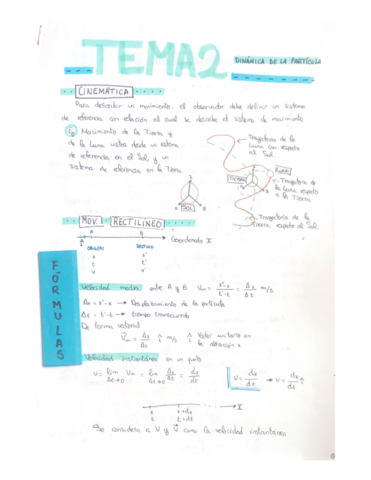 TEMA 2
DINÁMICA DE LA PARTÍCULA
CINEMÁTICA
Para describir un movimiento, el observador debe definir un sistema
de referencia con relación al cual se describe el sistema de movimiento
Ej Movimiento de la Tierra y
de la Luna vistos desde un sistema
de referencia en el Sol, y un
sistema de referencia en la Tierra
Trayectoria de la
Luna con respeto
al Sol.
Tierra
Luna
Trayectoria de
la Luna respeto
a la Tierra
Trayectoria de la
Tierra respeto al Sol
Sol
MOV. RECTILÍNEO
A B
Coordenada X
ORIGEN DESTINO
x x'
t t'
v v'
FÓRMULAS
Velocidad media entre A y B Vm = x'-x / t'-t = Δx / Δt m/s
Δx = x'-x → Desplazamiento de la partícula
Δt = t'-t → tiempo transcurrido
De forma vectorial
Vm = Δx / Δt î m/s î Vector unitario en
la dirección x
Velocidad instantánea en un punto
v = lim Vm = lim Δx / Δt = dx / dt
Δt→0 Δt→0
v = dx / dt → v = dx / dt î
x x+dx X
t t+dt
Se considera a V y V⃗ como la velocidad instantánea